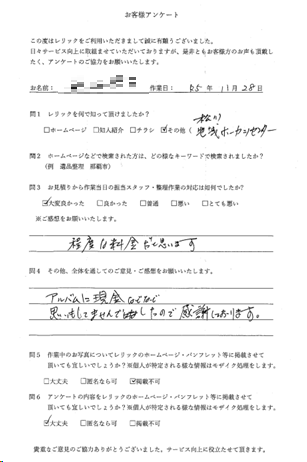 お客様アンケート
この度はレリックをご利用いただきまして誠に有難うございました。
日々サービス向上に取組ませていただいておりますが、是非ともお客様方のお声も頂戴し
たく、アンケートのご協力をお願いいたします。
お名前: 作業日: 55年 11月 28日
問1 レリックを何で知って頂けましたか?
□ホームページ □知人紹介 □チラシ ☑その他(
問2 ホームページなどで検索された方は、どの様なキーワードで検索されましたか?
(例 遺品整理 那覇市)
問3 お見積りから作業当日の担当スタッフ・整理作業の対応は如何でしたか?
☑大変良かった □良かった □普通 □悪い □とても悪い
※ご感想をお願いいたします。
程度な料金だと思います
問4 その他、全体を通してのご意見・ご感想をお願いいたします。
アルバムに現金などなど
思いもしてませんでしたので感謝しております。
問5 作業中のお写真についてレリックのホームページ・パンフレット等に掲載させて
頂いても宜しいでしょうか?※個人が特定される様な情報はモザイク処理をします。
□大丈夫 □匿名なら可 ☑掲載不可
問6 アンケートの内容をレリックのホームページ・パンフレット等に掲載させて
頂いても宜しいでしょうか?※個人が特定される様な情報はモザイク処理をします。
☑大丈夫 □匿名なら可 □掲載不可
貴重なご意見のご協力ありがとうございました。サービス向上に役立たせて頂きます。